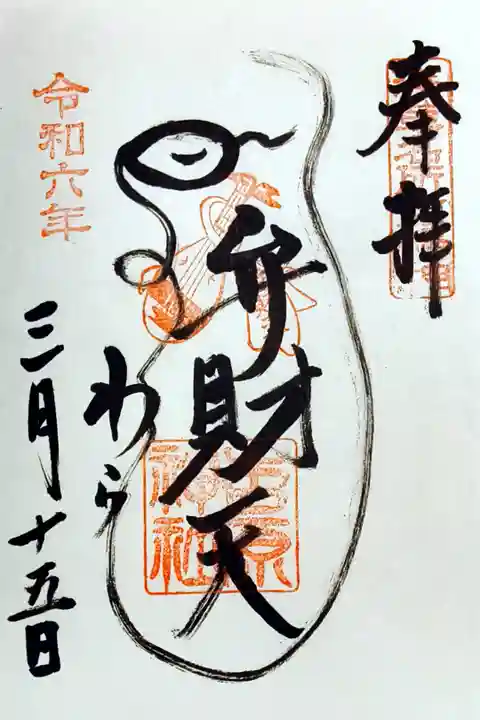 奉拝
弁財天
わら
吉原神社
令和六年
三月十五日